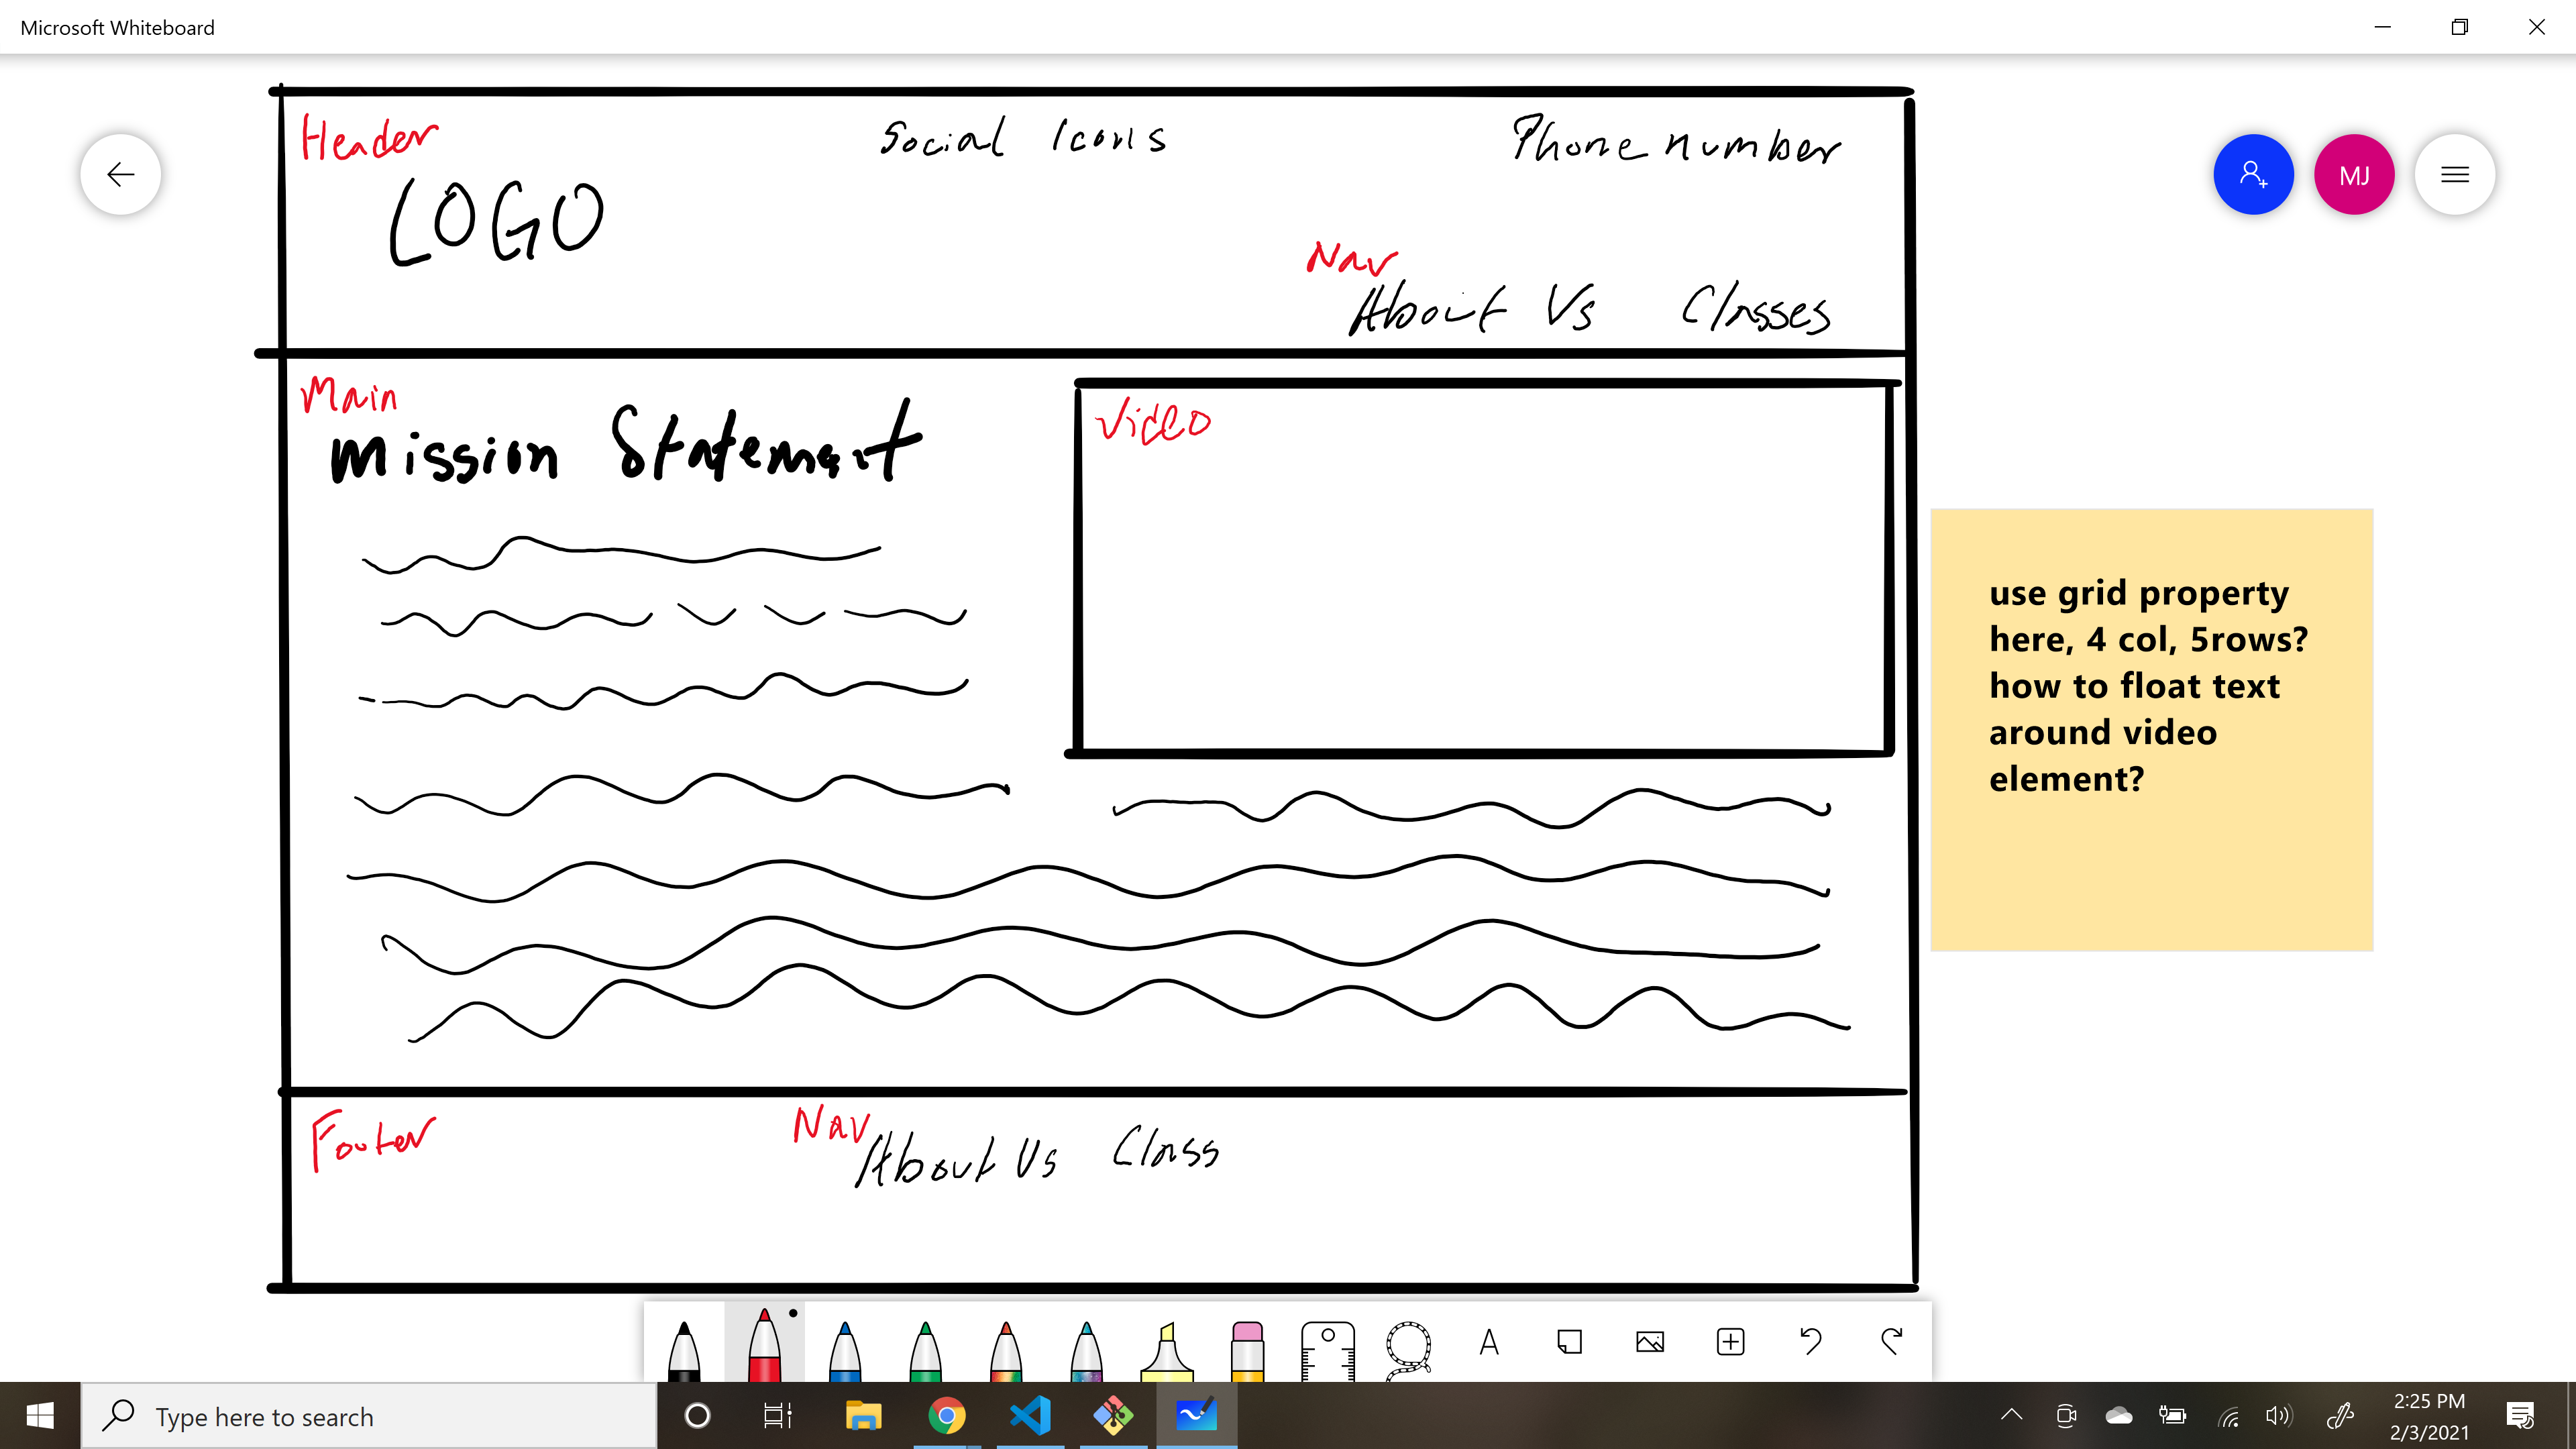 Microsoft Whiteboard
Header
Social Icons
Phone number
LOGO
MJ
Nav
About Us Classes
Main
Mission Statement
Video
use grid property
here, 4 col, 5rows?
how to float text
around video
element?
Footer
Nav
About Us Class
A
Type here to search
2:25 PM
2/3/2021